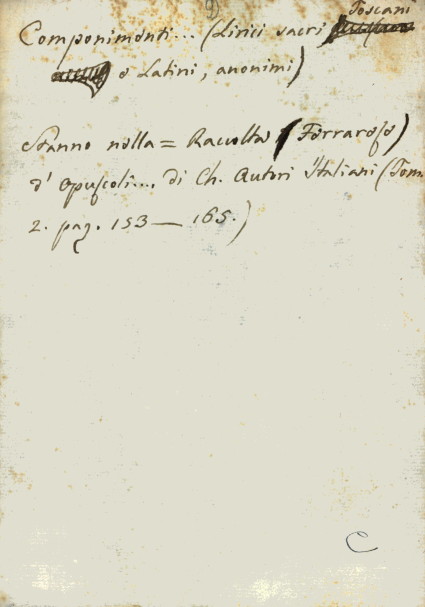 9)
Toscani
Componimenti... (Lirici sacri
e Latini, anonimi)
Stanno nella = Raccolta (Ferrarese)
d' Opuscoli... di Ch. Autori Italiani (Tom.
2. pag. 153 — 165.)
C